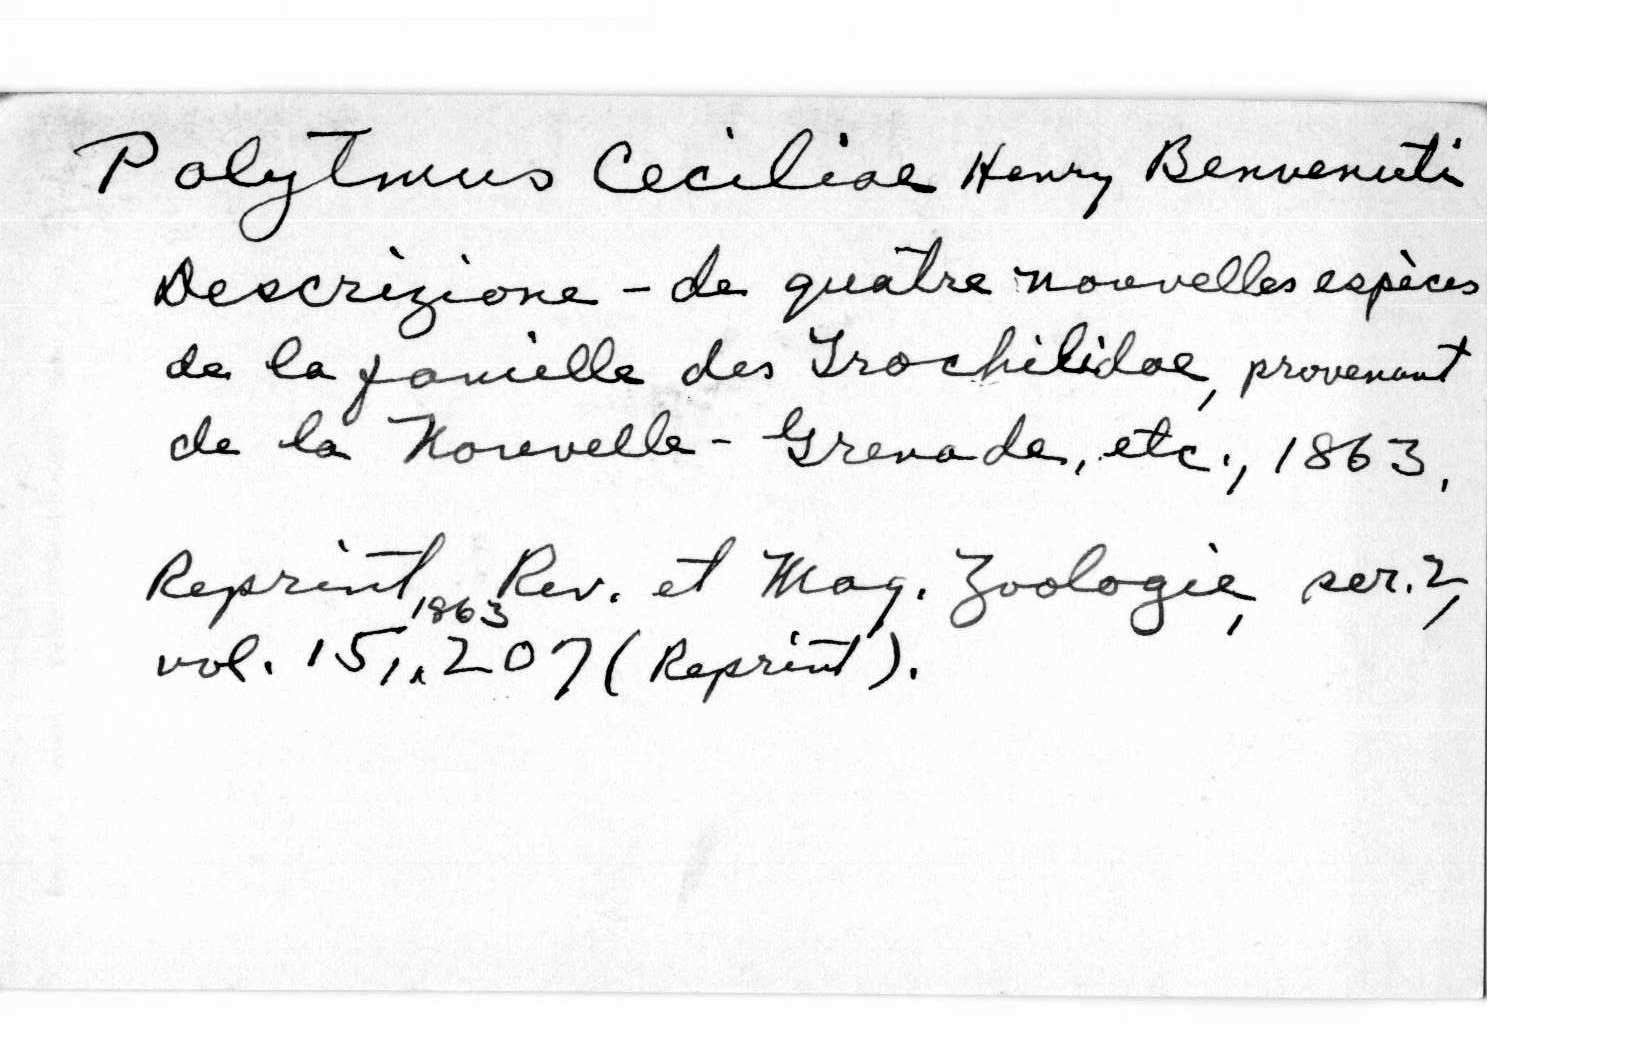 Polytmus Ceciliae Henry Benvenuti
Descrizione - de quatre nouvelles espèces
de la famille des Trochilidae, provenant
de la Nouvelle - Grenade, etc., 1863.
Reprint, Rev. et Mag. Zoologie, ser. 2,
vol. 15, 1863, 207 (Reprint).